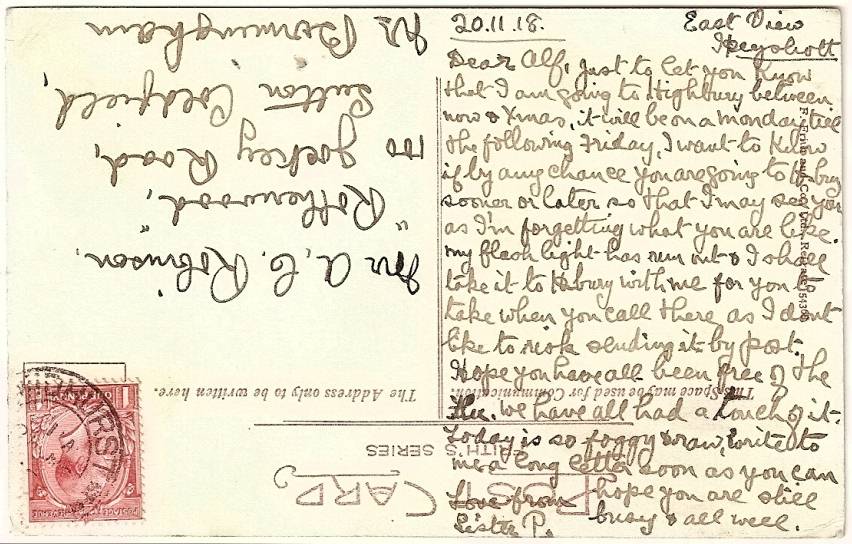 20.11.18.
East View
Heyshott
Dear Alf, Just to let you know
that I am going to Highbury between
now & Xmas, it will be on a monday till
the following Friday, I want to know
if by any chance you are going to H-bury
sooner or later so that I may see you
as I'm forgetting what you are like.
my flash light has run out & I shall
take it to H-bury with me for you to
take when you call there as I dont
like to risk sending it by post.
Hope you have all been free of the
flu. we have all had a touch of it.
Today is so foggy & raw, write to
me a long letter soon as you can
hope you are still
busy & all well.
Love from
Sister P.
Mr A. C. Robinson,
"Rotherwood,
100 Jockey Road,
Sutton Coldfield,
Nr Bormingham
POST CARD
FRITH'S SERIES
This Space may be used for Communication
The Address only to be written here.
F. Frith and Co., Ltd., Reigate
POSTAGE REVENUE
1